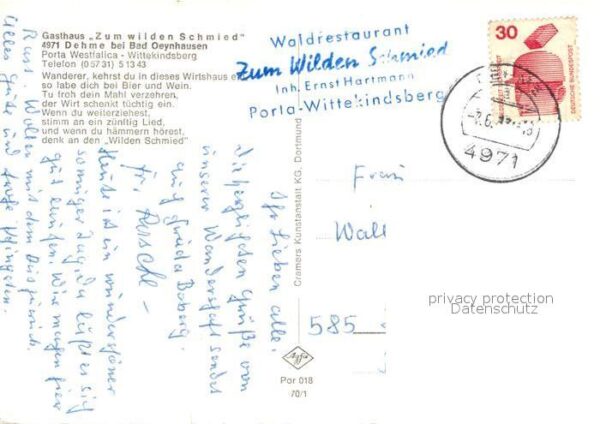 Gasthaus „Zum wilden Schmied"
4971 Dehme bei Bad Oeynhausen
Porta Westfalica - Wittekindsberg
Telefon (0 57 31) 5 13 43
Wanderer, kehrst du in dieses Wirtshaus e
so labe dich bei Bier und Wein.
Tu froh dein Mahl verzehren,
der Wirt schenkt tüchtig ein.
Wenn du weiterziehest,
stimm an ein zünftig Lied,
und wenn du hämmern hörest,
denk an den „Wilden Schmied"
Waldrestaurant
Zum Wilden Schmied
Inh. Ernst Hartmann
Porta-Wittekindsberg
30
DEUTSCHE BUNDESPOST
4971
Cramers Kunstanstalt KG. Dortmund
Agfa
Por 018
70/1
Frau
Wall
585
privacy protection
Datenschutz
Ihr Lieben alle.
Die herzlichsten Grüße von
unserer Wanderschaft sendet
Heute ist ein wunderschöner
sonniger Tag, da läuft es sich
gut
Alles Gute und frohe Pfingsten.